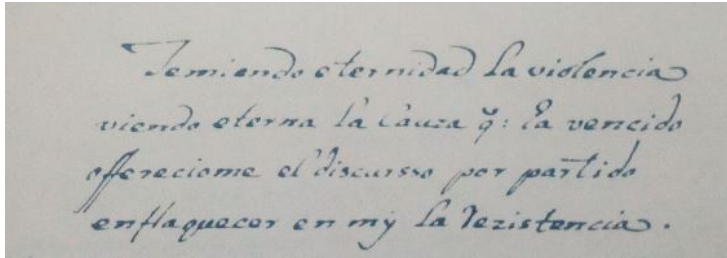 Temiendo eternidad la violencia
viendo eterna la cauza q̃: la vencido
offereciome el discursso por partido
enflaquecer en mÿ la rezistencia.